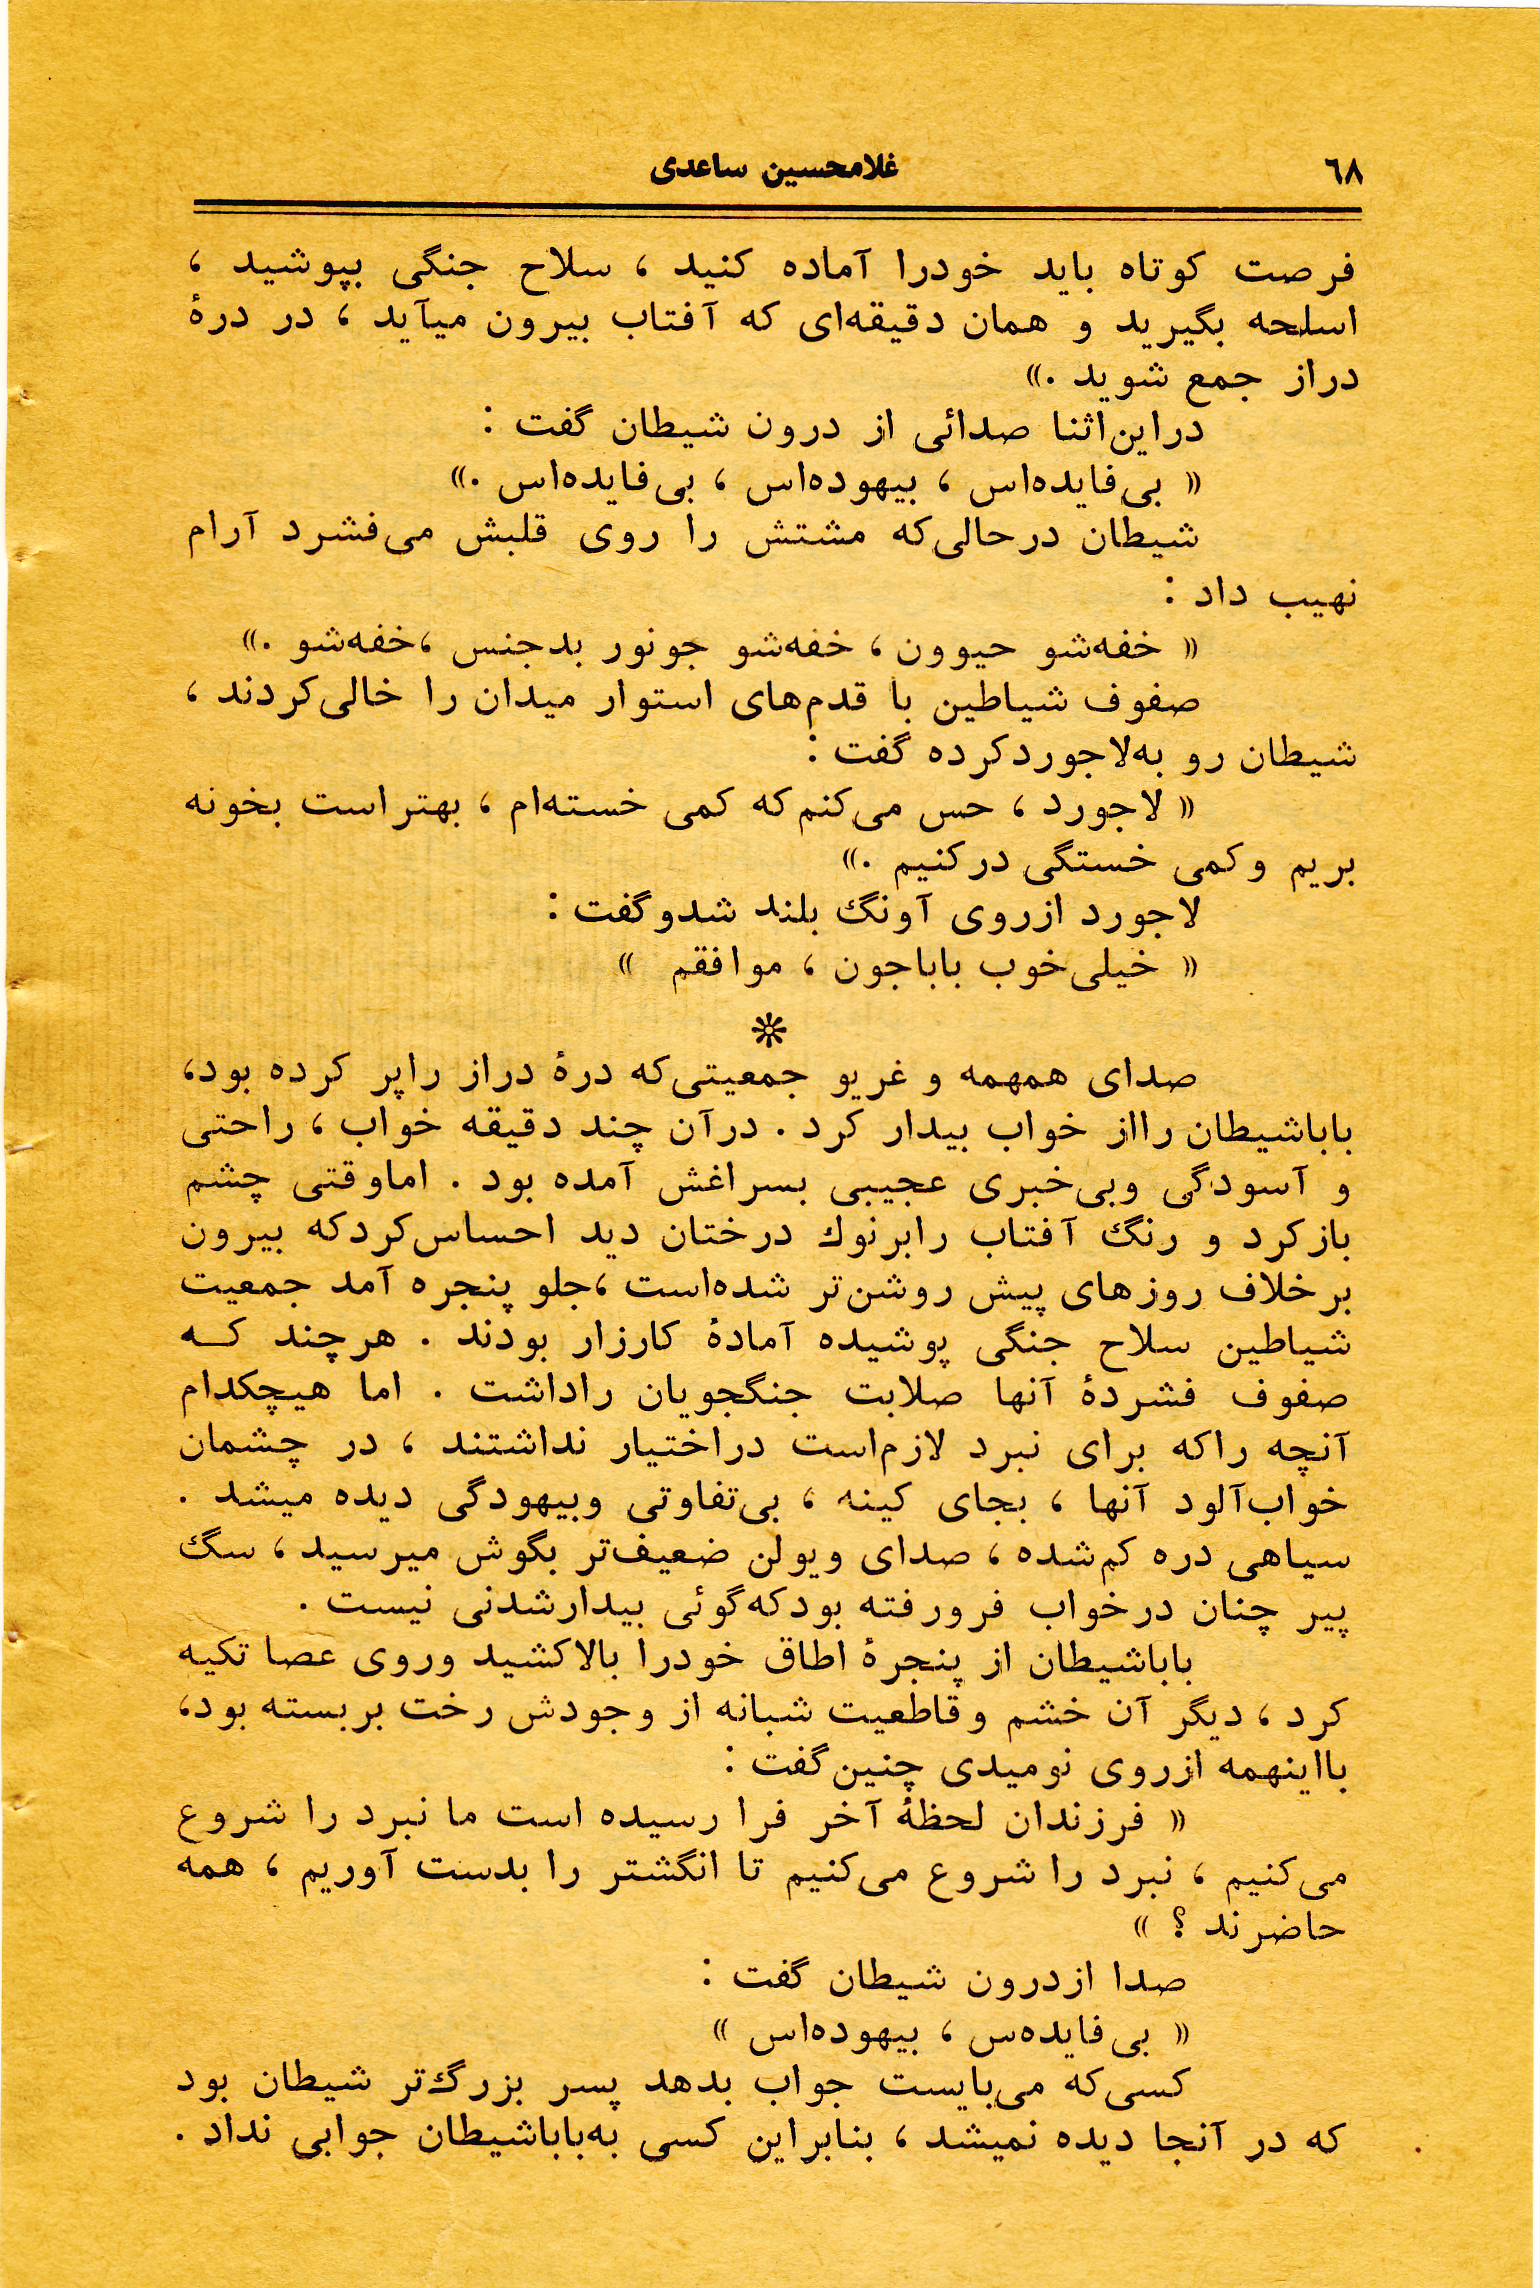 ۶۸ غلامحسین ساعدی
فرصت کوتاه باید خودرا آماده کنید ، سلاح جنگی بپوشید ،
اسلحه بگیرید و همان دقیقه‌ای که آفتاب بیرون میآید ، در درهٔ
دراز جمع شوید .»
دراین‌اثنا صدائی از درون شیطان گفت :
« بی‌فایده‌اس ، بیهوده‌اس ، بی‌فایده‌اس .»
شیطان درحالی‌که مشتش را روی قلبش می‌فشرد آرام
نهیب داد :
« خفه‌شو حیوون ، خفه‌شو جونور بدجنس ،خفه‌شو .»
صفوف شیاطین با قدم‌های استوار میدان را خالی‌کردند ،
شیطان رو به‌لاجوردکرده گفت :
« لاجورد ، حس می‌کنم‌که کمی خسته‌ام ، بهتراست بخونه
بریم وکمی خستگی درکنیم .»
لاجورد ازروی آونگ بلند شدوگفت :
« خیلی‌خوب باباجون ، موافقم »
❊
صدای همهمه و غریو جمعیتی‌که درهٔ دراز راپر کرده بود،
باباشیطان رااز خواب بیدار کرد . درآن چند دقیقه خواب ، راحتی
و آسودگی وبی‌خبری عجیبی بسراغش آمده بود . اماوقتی چشم
بازکرد و رنگ آفتاب رابرنوك درختان دید احساس‌کردکه بیرون
برخلاف روزهای پیش روشن‌تر شده‌است ،جلو پنجره آمد جمعیت
شیاطین سلاح جنگی پوشیده آمادهٔ کارزار بودند . هرچند کـه
صفوف فشردهٔ آنها صلابت جنگجویان راداشت . اما هیچکدام
آنچه راکه برای نبرد لازم‌است دراختیار نداشتند ، در چشمان
خواب‌آلود آنها ، بجای کینه ، بی‌تفاوتی وبیهودگی دیده میشد .
سیاهی دره کم‌شده ، صدای ویولن ضعیف‌تر بگوش میرسید ، سگ
پیر چنان درخواب فرورفته بودکه‌گوئی بیدارشدنی نیست .
باباشیطان از پنجرهٔ اطاق خودرا بالاکشید وروی عصا تکیه
کرد ، دیگر آن خشم وقاطعیت شبانه از وجودش رخت بربسته بود،
بااینهمه ازروی نومیدی چنین‌گفت :
« فرزندان لحظهٔ آخر فرا رسیده است ما نبرد را شروع
می‌کنیم ، نبرد را شروع می‌کنیم تا انگشتر را بدست آوریم ، همه
حاضرند ؟ »
صدا ازدرون شیطان گفت :
« بی‌فایده‌س ، بیهوده‌اس »
کسی‌که می‌بایست جواب بدهد پسر بزرگ‌تر شیطان بود
که در آنجا دیده نمیشد ، بنابراین کسی به‌باباشیطان جوابی نداد .